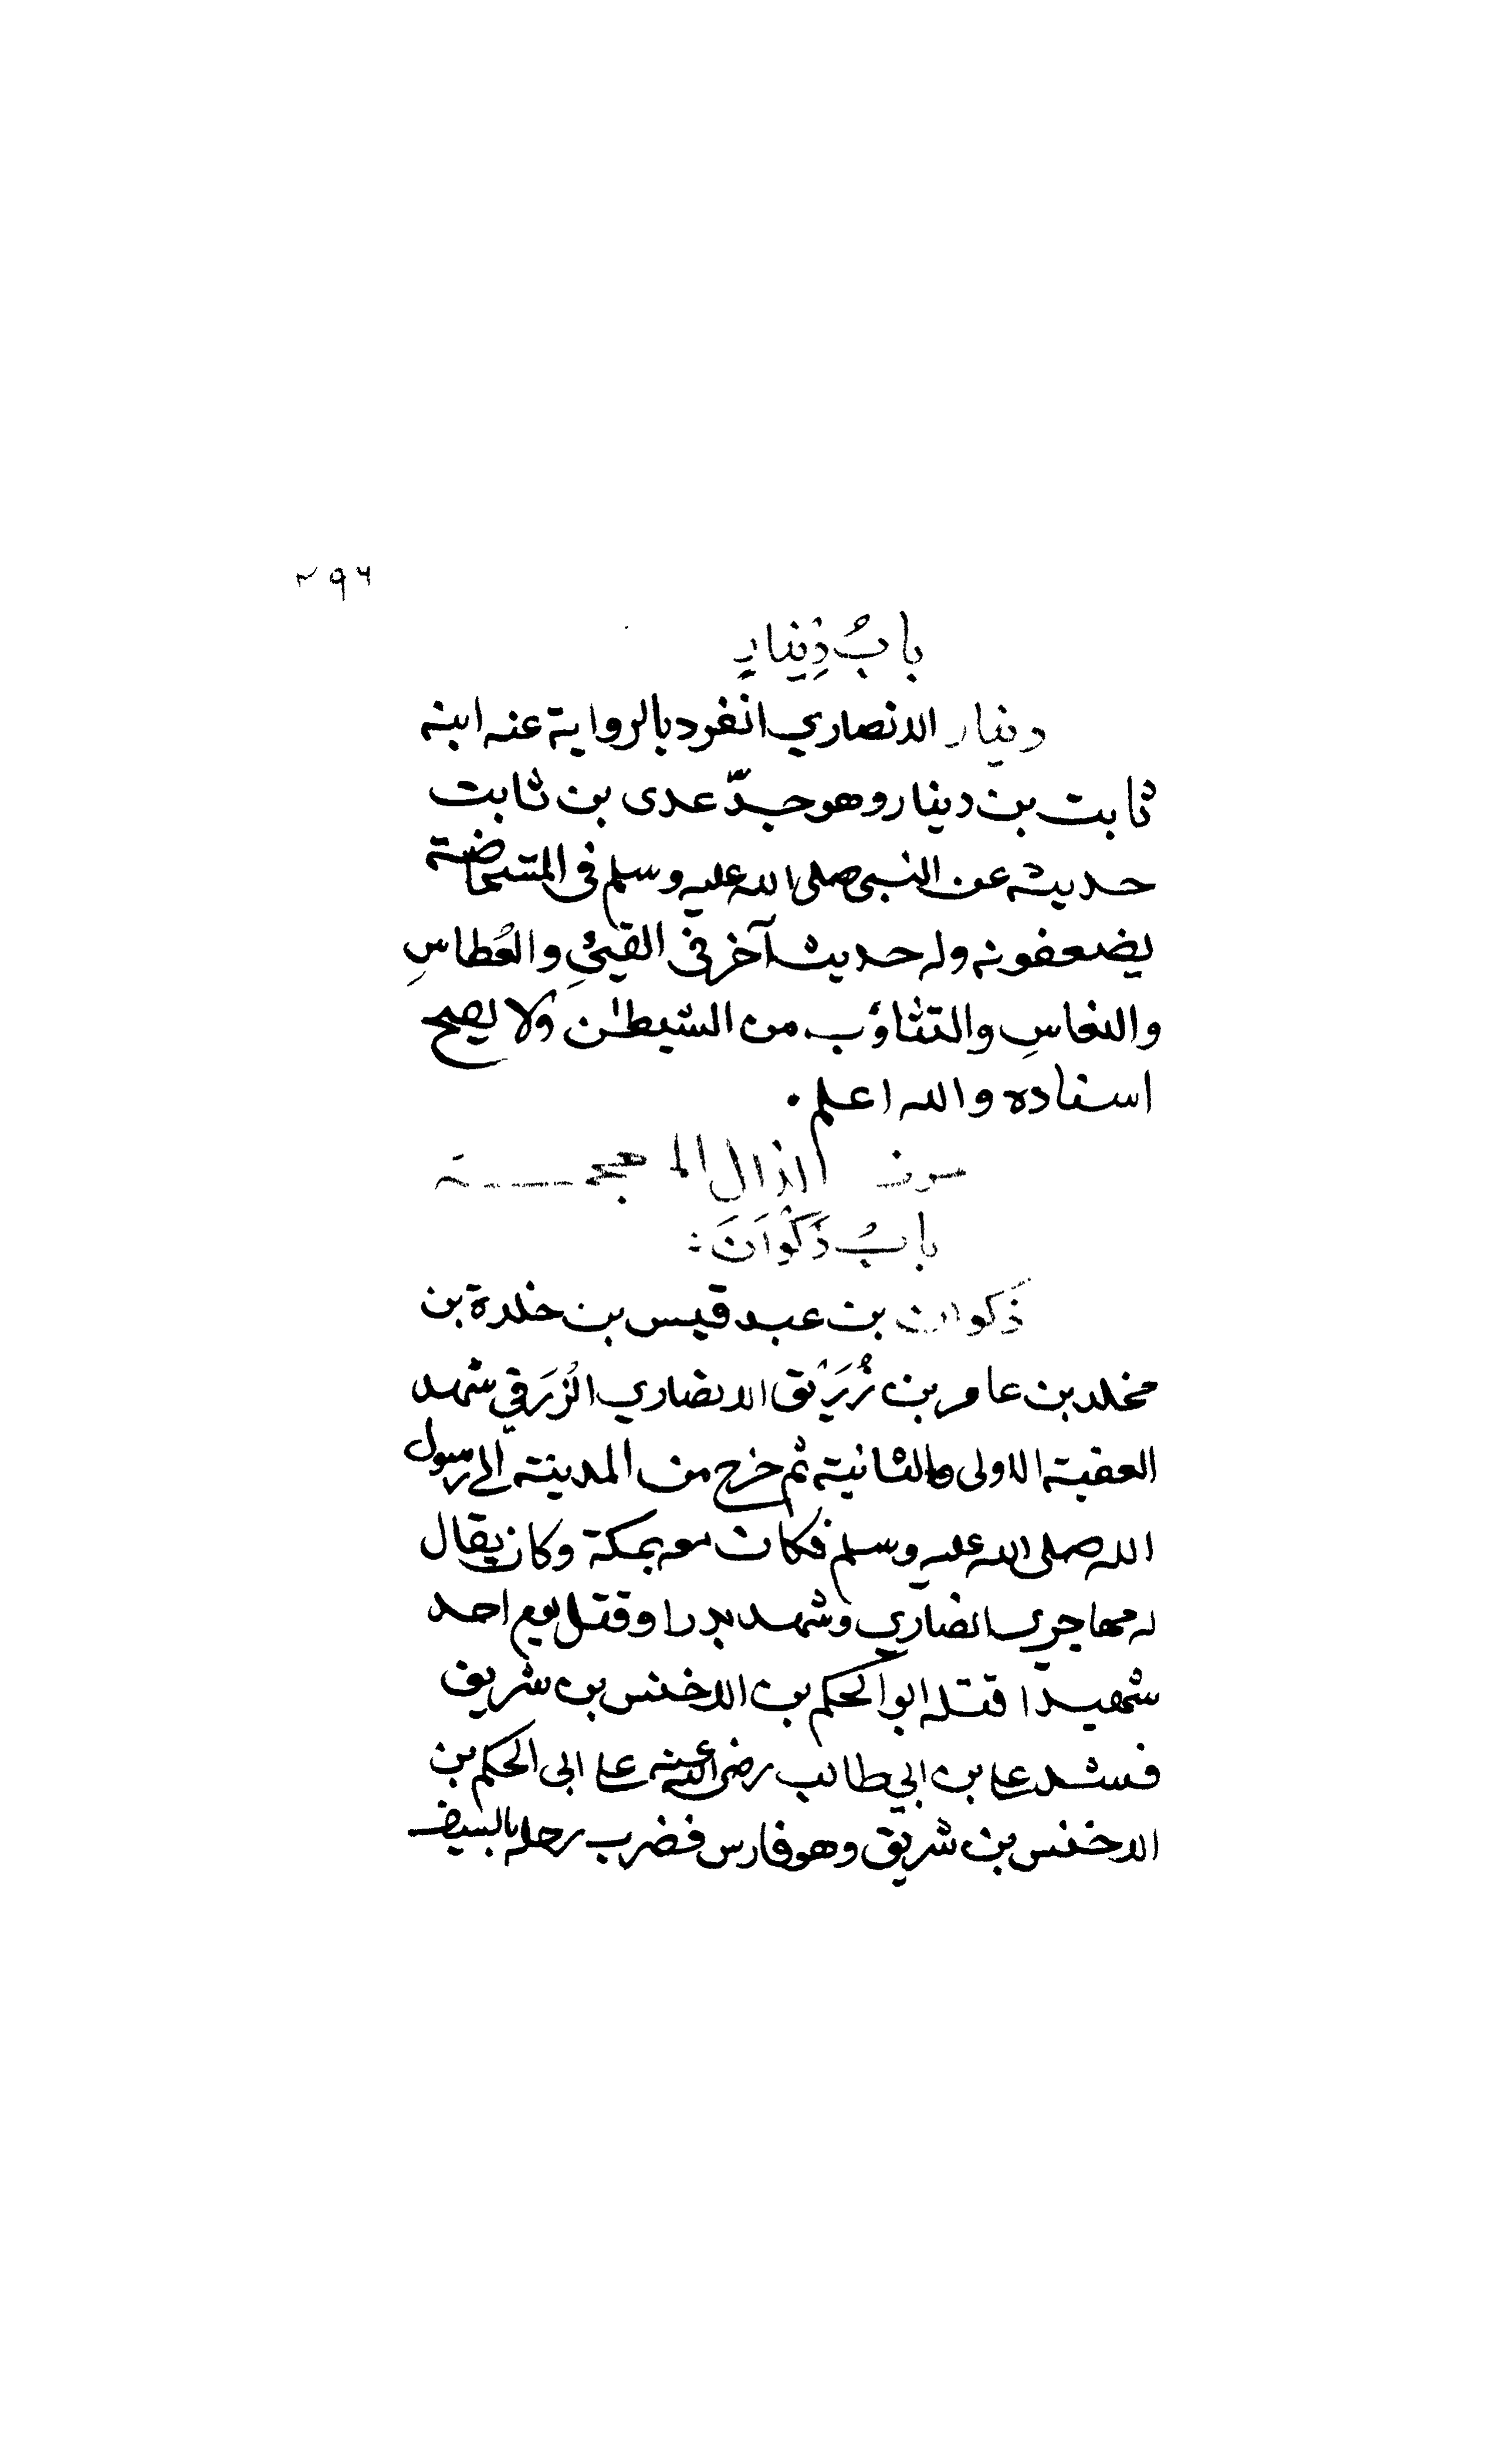 ٢٩٦
بابُ دِينارٍ
دينار الانصاري انفرد بالرواية عنه ابنه
ثابت بن دينار وهو جدّ عدى بن ثابت
حديثه عن النبى صلى الله عليه وسلم فى المستحاضة
يضعفونه وله حديث آخر فى القيئِ والعُطاسِ
والنعاسِ والتثاؤب من الشيطٰن ولا يصح
اسناده والله اعلم .
حرف الذال المعجمـــة
بابُ ذَكْوَانَ :
ذَكوان بن عبد قيس بن خلدة بن
مخلد بن عامر بن زُرَيْق الانصاري الزُرَقي شهد
العقبة الاولى والثانية ثم خرج من المدينة الى رسول
الله صلى الله عليه وسلم فكان معه بمكة وكان يقال
له مهاجري انصاري وشهد بدرا وقتل يوم احد
شهيدا قتله ابو الحكم بن الاخنس بن شريق
فشد على بن ابي طالب رضى الله عنه على ابى الحكم بن
الاخنس بن شريق وهو فارس فضرب رجله بالسيف